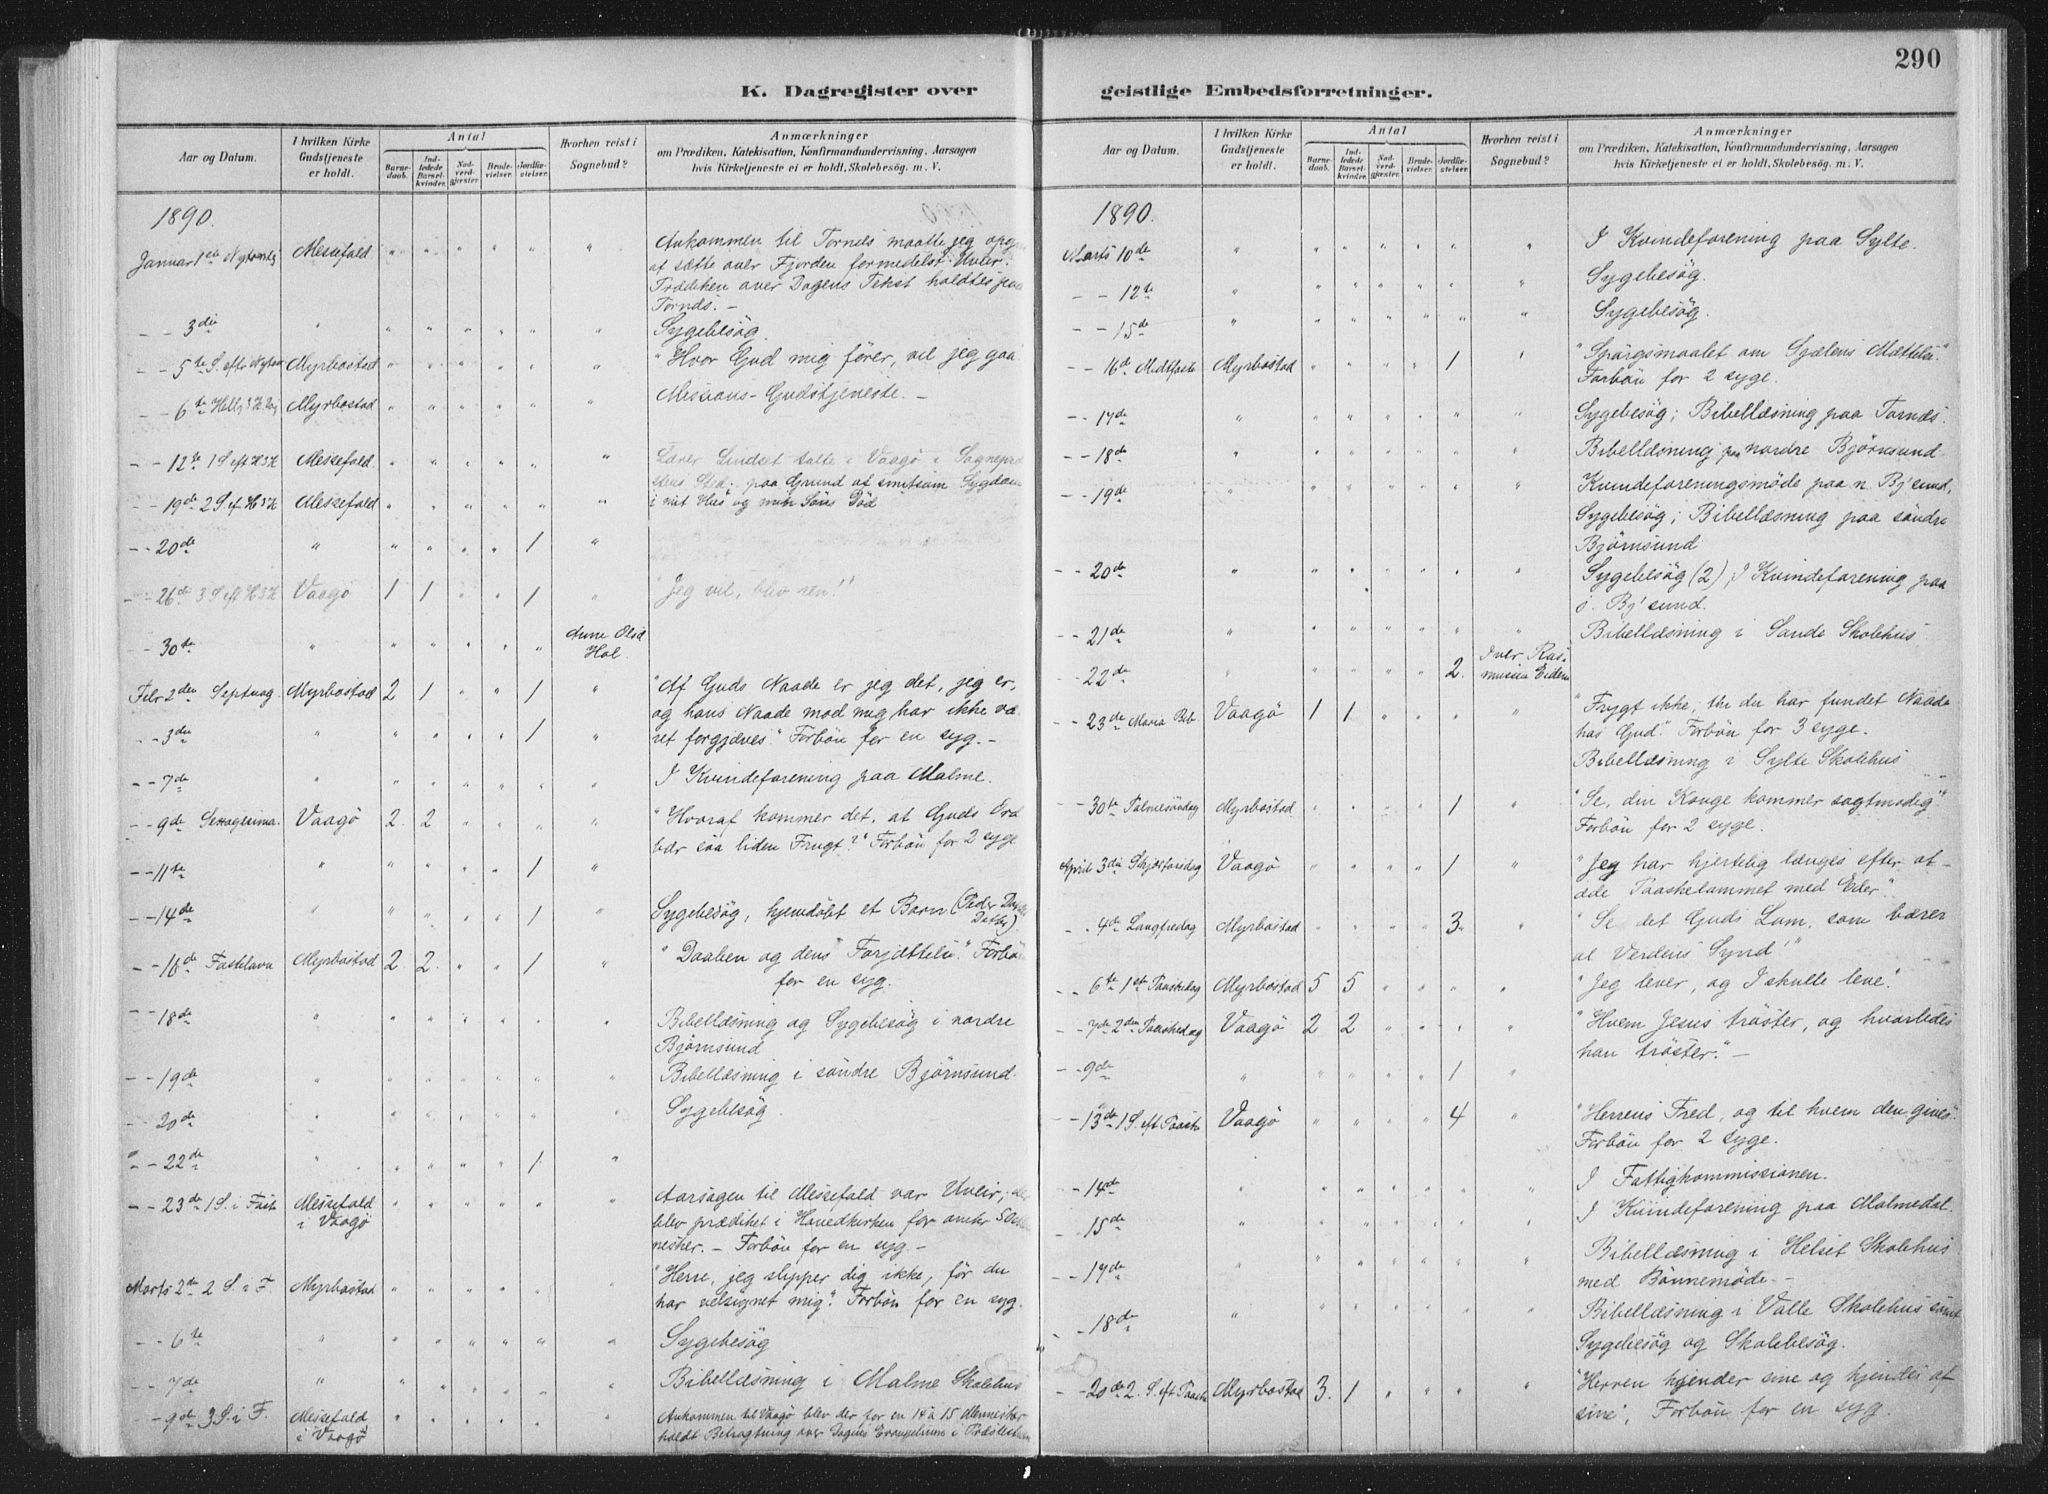 290
K. Dagregister over
geistlige Embedsforretninger.
Aar og Datum.
I hvilken Kirke Gudstjeneste er holdt.
Antal
Barnedaab.
Indledede Barselkvinder.
Nadverdgjæster.
Brudevielser.
Jordfæstelser.
Hvorhen reist i Sognebud?
Anmærkninger
om Prædiken, Katekisation, Konfirmandundervisning, Aarsagen
hvis Kirketjeneste ei er holdt, Skolebesøg. m. V.
1890.
Januar 1ste Nytaarsdg Messefald " " " " " " Ankommen til Tornes maatte jeg opgive
at sætte over Fjorden formedelst Uveir.
Prædiken over Dagens Tekst holdtes paa
Tornes. -
- - 3die " " " " " " " Sygebesøg.
- - 5te S. efter Nytaar Myrbostad " " " " " " "Hvor Gud mig fører, vil jeg gaa
- - 6te Hellg 3 K. Dag Myrbostad " " " " " " Missions-Gudstjeneste. -
- - 12te 1 S eft H3K Messefald " " " " " " Lærer Lindset talte i Vaagø i Sognepræ
stens Sted, paa Grund af smitsom Sygdom
- - 19de 2 S. ef H3K Messefald " " " " " " i mit Hus og min Søns Død
- - 20de " " " " " 1 "
- - 26de 3 S eft H3K Vaagø 1 1 " " 1 " "Jeg vil, bliv ren!"
- 30te " " " " " " Anne Olsd
Hol.
Febr 2den Septuag Myrbostad 2 1 " " 1 " "Af Guds Naade er jeg det, jeg er,
og hans Naade mod mig har ikke væ
- - 3die " " " " " 1 " ret forgjæves." Forbøn for en syg. -
- - 7de " " " " " " " I Kvindeforening paa Malme.
- - 9de Sexagesima. Vaagø 2. 2 " " " " "Hvoraf kommer det, at Guds Ord
bær saa liden Frugt?" Forbøn for 2 syge
- - 11te " " " " " 1 "
- - 14de " " " " " 1 " Sygebesøg, hjemdøbt et Barn
- - 16de Fastelavn Myrbostad 2. 2. " " 1 " "Daaben og dens Forjættelse." Forbøn
for en syg.
- - 18de " " " " " " " Bibellæsning og Sygebesøg i nordre
Bjørnsund
- - 19de " " " " " " " Bibellæsning i søndre Bjørnsund.
- - 20de " " " " " " " Sygebesøg.
- - 22de " " " " " 1 "
- - 23de 1 S. i Fast Messefald
i Vaagø " " " " " " Aarsagen til Messefald var Uveir, der
blev prædiket i Hovedkirken for omtr
nesker. - Forbøn for en syg. -
Marts 2de 2 S. i F. Myrbostad " " " " " " "Herre, jeg slipper dig ikke, før du
har velsignet mig". Forbøn for en syg.
- - 6te " " " " " " " Sygebesøg
- - 7de " " " " " " " Bibellæsning i Malme Skolehus
- - 9de 3 S. i F. Messefald
i Vaagø " " " " " " Ankommen til Vaagø blev der for en 14 à 15 Mennesker
holdt Betragtning over Dagens Evangelium i
Aar og Datum.
I hvilken Kirke Gudstjeneste er holdt.
Antal
Barnedaab.
Indledede Barselkvinder.
Nadverdgjæster.
Brudevielser.
Jordfæstelser.
Hvorhen reist i Sognebud?
Anmærkninger
om Prædiken, Katekisation, Konfirmandundervisning, Aarsagen
hvis Kirketjeneste ei er holdt, Skolebesøg. m. V.
1890.
Marts 10de " " " " " " " I Kvindeforening paa Sylte.
- - 12te " " " " " " " Sygebesøg.
- - 15de " " " " " " " Sygebesøg.
- - 16de Midtfaste Myrbostad " " " " 1 " "Spørgsmaalet om Sjælens Mættelse."
Forbøn for 2 syge.
- - 17de " " " " " " " Sygebesøg; Bibellæsning paa Tornes.
- - 18de " " " " " " " Bibellæsning paa nordre Bjørnsund
- - 19de " " " " " " " Kvindeforeningsmøde paa n. Bj'sund,
Sygebesøg; Bibellæsning paa søndre
Bjørnsund
- - 20de " " " " " " " Sygebesøg (2), I Kvindeforening paa
s. Bj'sund.
- - 21de " " " " " " " Bibellæsning i Sande Skolehus
- - 22de " " " " " 2. Iver Ras-
mussen Eiden
- - 23de Maria Beb. Vaagø 1 1 " " " " "Frygt ikke, thi du har fundet Naade
hos Gud". Forbøn for 3 syge.
Bibellæsning i Sylte Skolehus
- - 30te Palmesøndag Myrbostad " " " " 1 " "Se, din Konge kommer sagtmodig"
Forbøn for 2 syge.
April 3die Skjærtorsdag Vaagø " " " " 1 " "Jeg har hjertelig længes efter at
æde Paaskelammet med Eder".
- - 4de Langfredag Myrbostad " " " " 3 " "Se det Guds Lam, som bærer
al Verdens Synd!"
- - 6te 1ste Paaskedag Myrbostad 5 5 " " " " "Jeg lever, og I skulle leve".
- - 7de 2den Paaskedag Vaagø 2 2 " " " " "Hvem Jesus trøster, og hvorledes
han trøster." -
- - 9de " " " " " 1 "
- - 13de 1 S. eft Paaske Vaagø " " " " 4 " "Herrens Fred, og til hvem den gives".
Forbøn for 2 syge.
- - 14de " " " " " " " I Fattigkommissionen.
- - 15de " " " " " " " I Kvindeforening paa Malmedal.
- - 17de " " " " " " " Bibellæsning i Helset Skolehus
med Bønnemøde. -
- - 18de " " " " " " " Bibellæsning i Valle Skolehus samt
Sygebesøg og Skolebesøg.
- - 20de 2. S. eft Paaske Myrbostad 3. 1 " " " " "Herren kjender sine og kjendes af
sine", Forbøn for en syg.